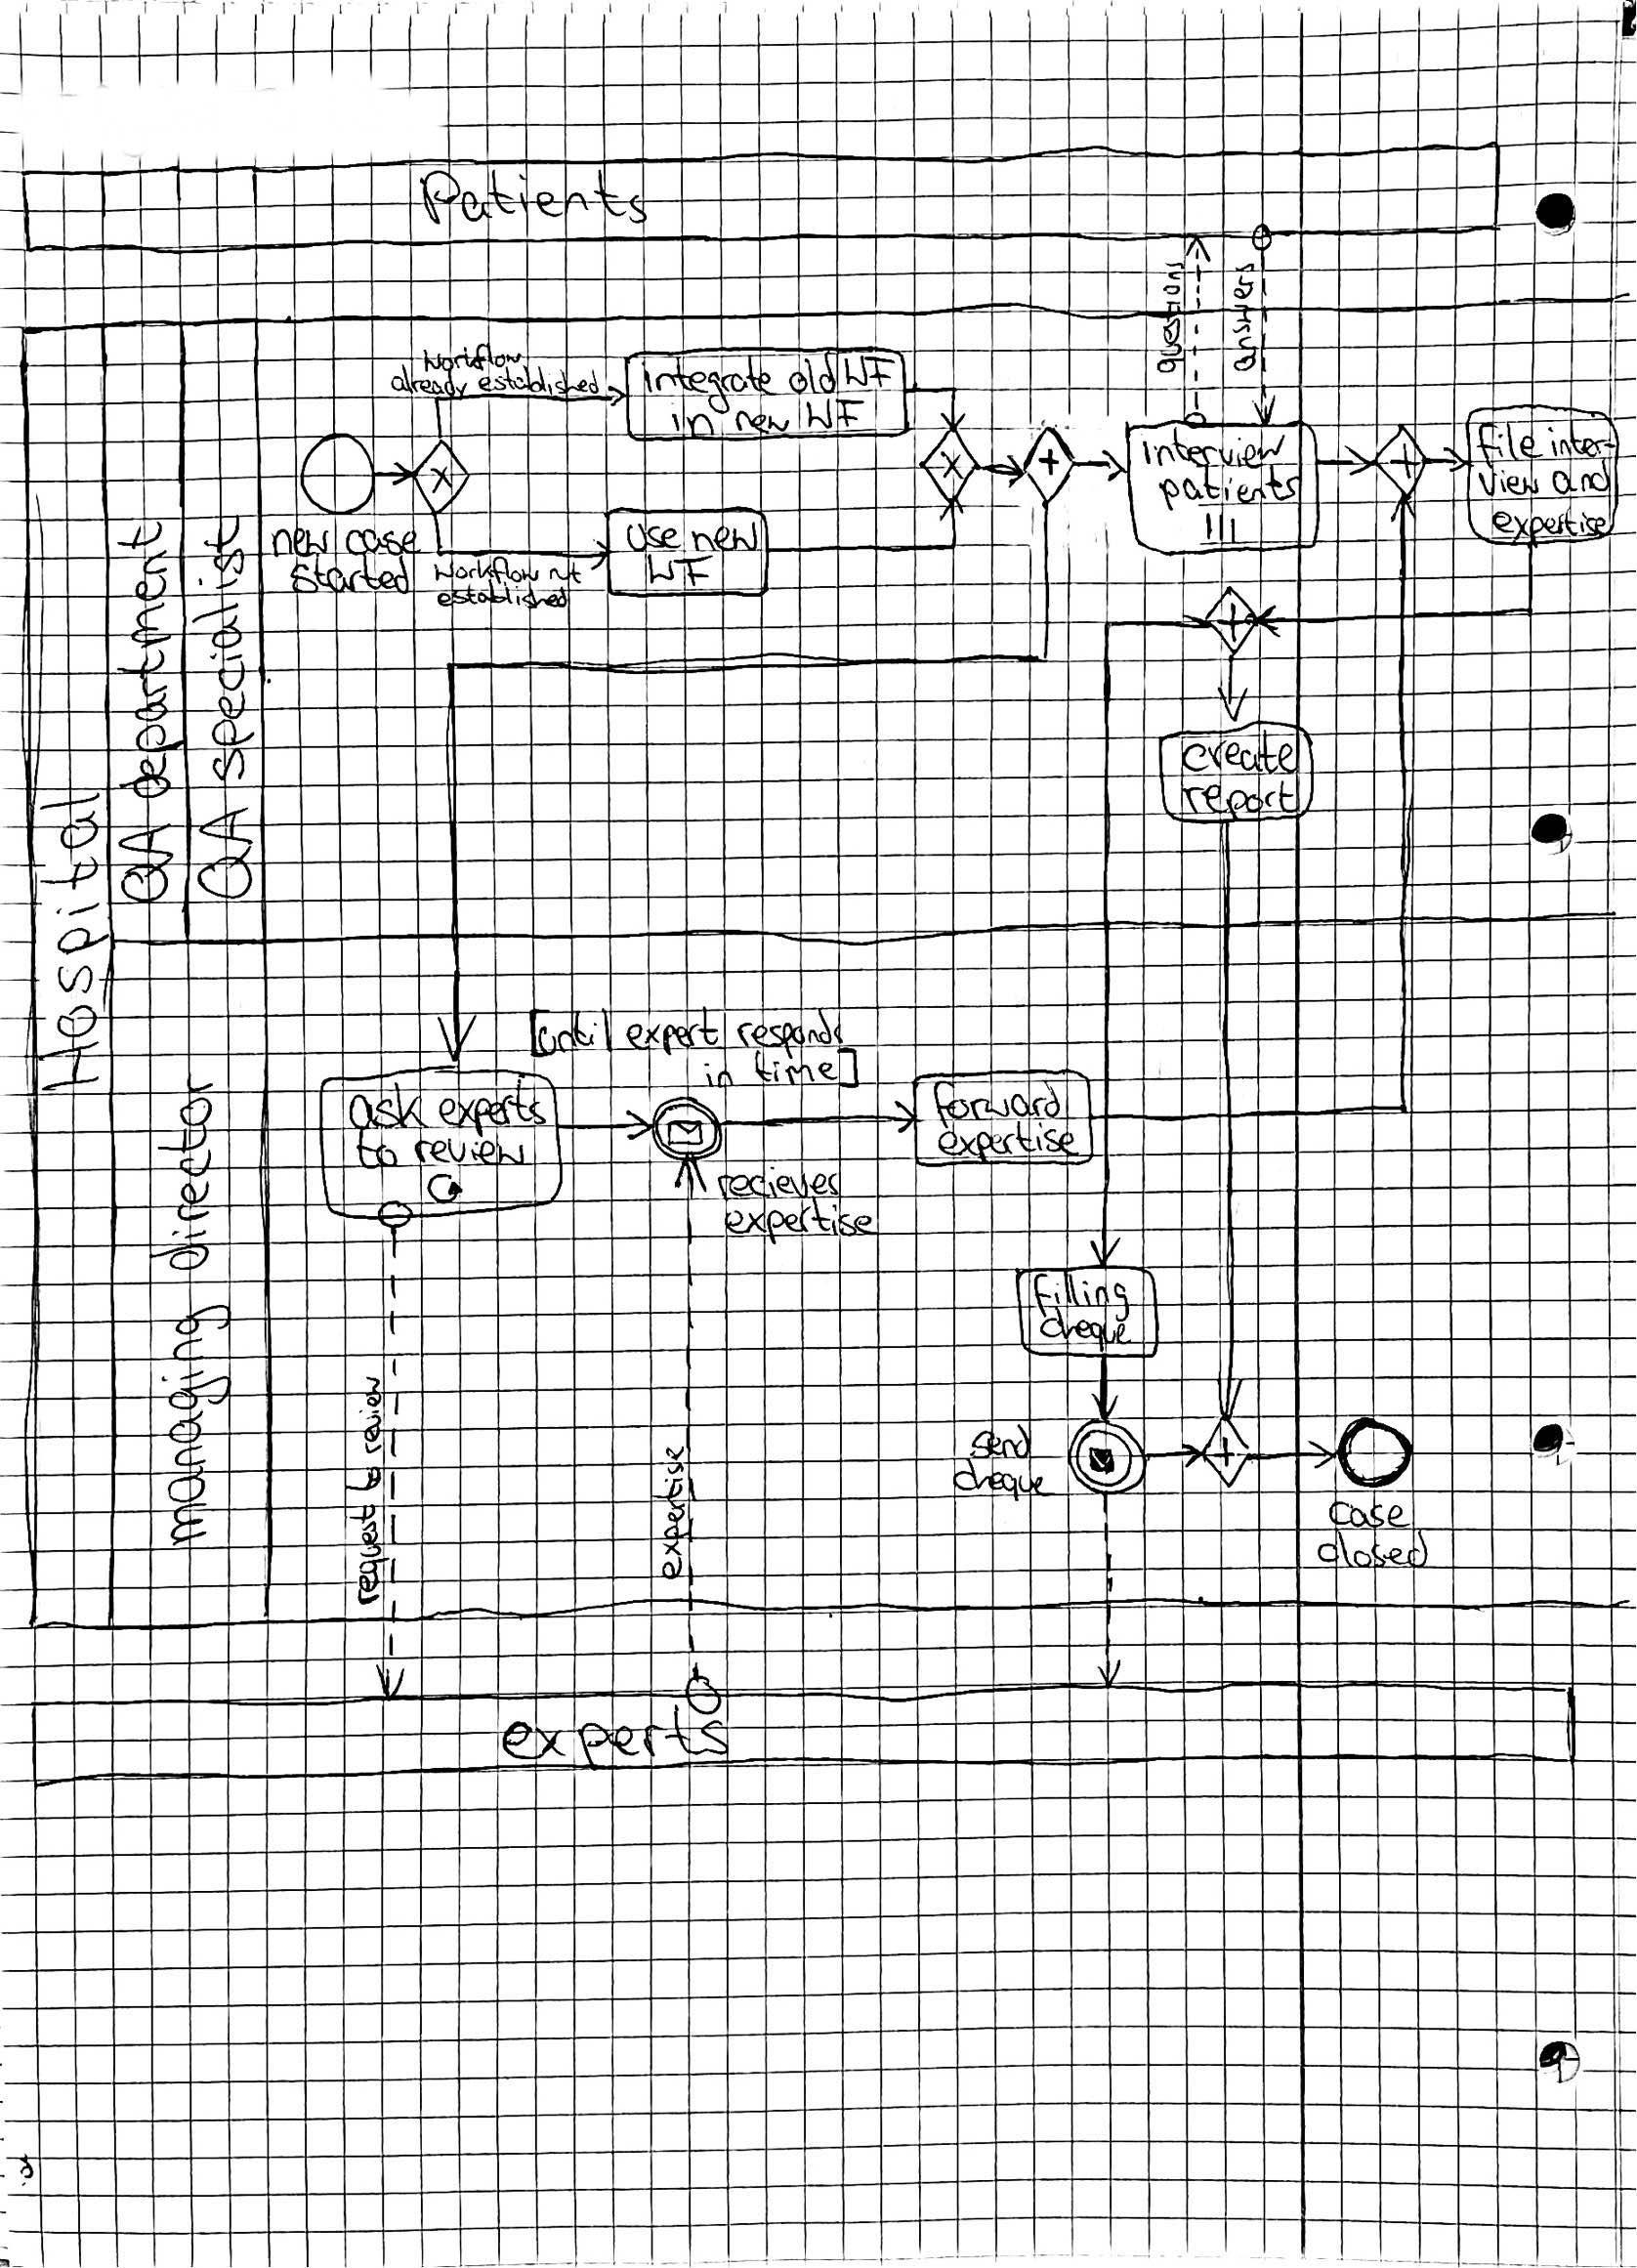 Patients
questions
answers
Hospital
QA department
QA specialist
Workflow
already established
integrate old WF
in new WF
new case
started
Workflow not
established
use new
WF
interview
patients
file inter-
view and
expertise
create
report
managing director
[until expert responds
in time]
ask experts
to review
recieves
expertise
forward
expertise
filling
cheque
send
cheque
case
closed
request to review
expertise
experts